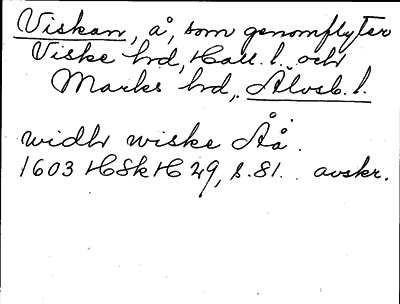 Viskan, å, som genomflyter
Viske hd, Hall. l. och
Marks hd, Älvsb. l.
widh wiske Åå.
1603 HSkH 29, s. 81. avskr.